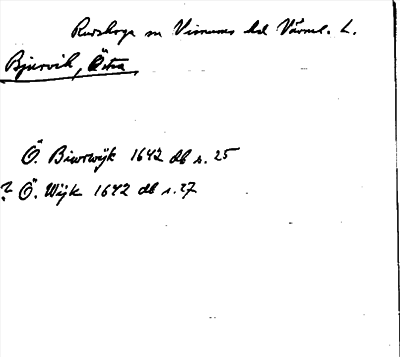 Rudskoga sn Visnums hd Värml. L.
Bjurvik, Östra
Ö. Biurwijk 1642 db s. 25
? Ö. Wijk 1642 db s. 27